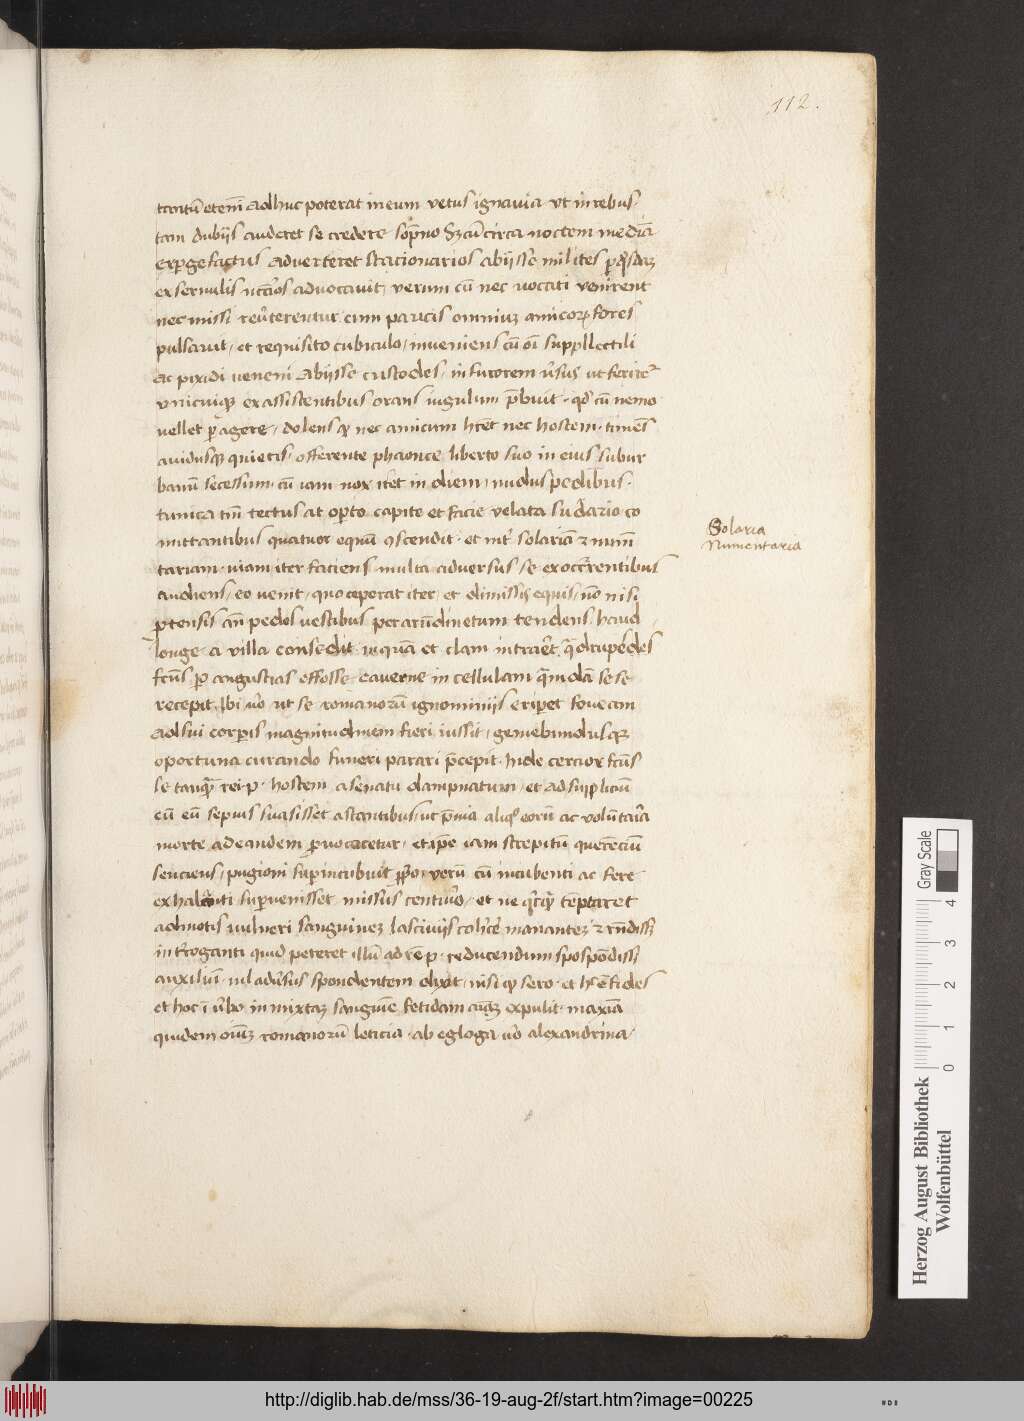 112.
tantū etenī adhuc poterat in eum vetus ignavia ut in rebus
tam dubijs auderet se credere sōpno Sz cū circa noctem mediā
expgefactus adverteret stacionarios abijsse milites
ex servulis nūcios advocavit, verum cū nec vocati venirent
nec missi revterentur cum paucis omniuz amicoꝝ fores
pulsavit, et requisito cubiculo, inveniens cū oī suppllectili
ac pixidi veneni abijsse custodes, in furorem ut feriret
unicuiqꝫ ex assistentibus orans iugulum p̄buit. qd cū nemo
vellet pagere, dolens qp nec amicum hret nec hostem. timens
avidusqꝫ quietis. offerente phaonte liberto suo in eius subur
banū secessum. cū iam nox iret in diem, nudus pedibus.
tunica tm̄ tectus at opto capite et facie velata sudario co
mittantibus quatuor equū ꝯscendit. et int solariā et num̄
tariam. viam iter faciens multa adversus se ex occrrentibus
audiens, eo venit, quo ceperat iter, et dimissis equis, nō nisi
ptensis an̄ pedes vestibus per arūdinetum tendens haud
longe a villa consedit in quā et clam intraret q̄drupedes
fcūs p angustias effosse caverne in cellulam q̄mdā sese
recepit. Ibi vo ut se romanorū ignominijs eriperet foveam
ad sui corpis magnitudinem fieri iussit, gemebundusqꝫ
oportuna curando funeri parari p̄cepit. Inde cercior fcūs
se tanq̄ rei.p. hostem a senatu dampnatum, et ad suppliciū
cū eū sepius suasisset astantibus, ut aliqs eorū ac volūtaria
morte ad eandem pvocaretur, et ipe iam strepitū querenciū
senciens, pugioni supincubuit pprio verū cū incubenti ac fere
exhalanti supvenisset missus centurio, et ne q̄rq̄ tēptaret
admotis vulneri sanguinez lascivijs manantez
introganti quid peteret illū ad rē p. reducendum
auxiliū. nil advsus spondentem dixit, nisi qp sero. et hec ē fides
et hoc ī vbo in mixtaz sanguīe fetidam aīaz expulit. maxīa
quidem oīuz romanorū leticia. ab egloga vo alexandrina.
Solaria
Numentaria
Gray Scale
0 1 2 3 4
Herzog August Bibliothek
Wolfenbüttel
http://diglib.hab.de/mss/36-19-aug-2f/start.htm?image=00225